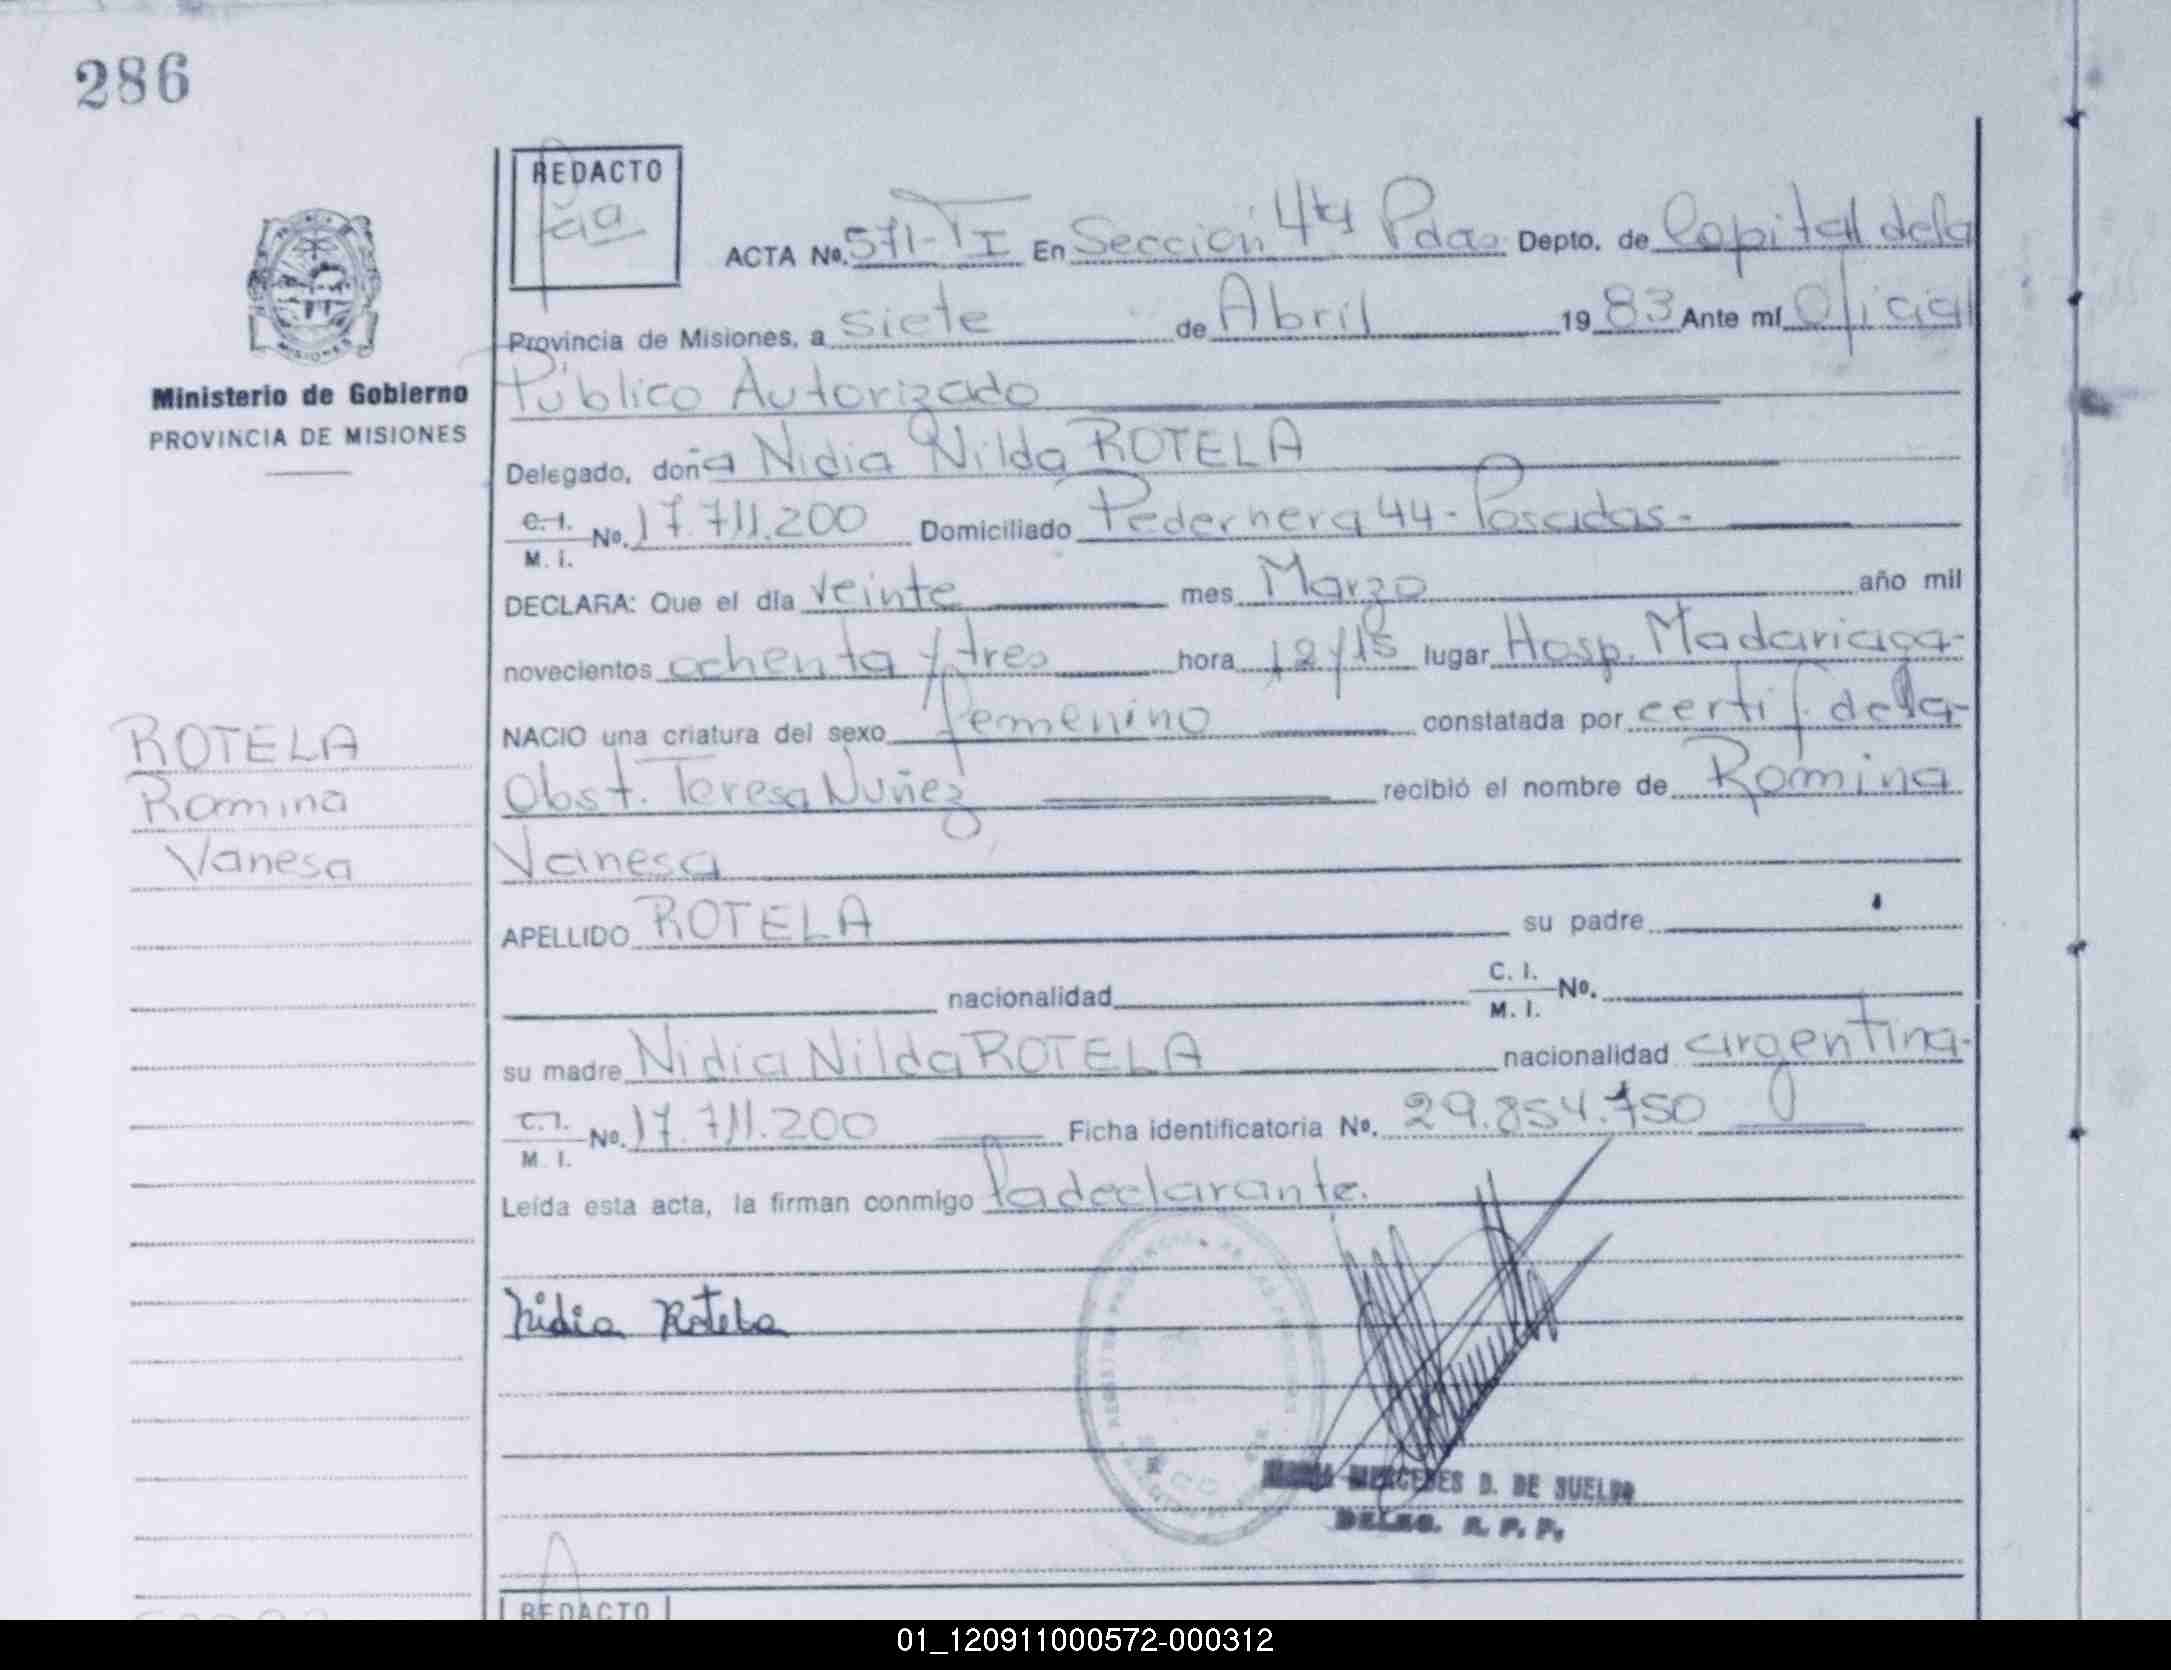 286
REDACTO
ACTA No. 571-TI En Sección 4ta Pdas Depto. de Capital de la
Provincia de Misiones, a siete de Abril 1983 Ante mí Oficial
Público Autorizado
MISIONES
Ministerio de Gobierno
PROVINCIA DE MISIONES
Delegado, doña Nidia Nilda ROTELA
C. I. M. I. No. 17.711.200 Domiciliado Pedernera 44 - Posadas -
DECLARA: Que el día veinte mes Marzo año mil
novecientos ochenta y tres hora 12/15 lugar Hosp. Madariaga -
NACIO una criatura del sexo femenino constatada por certif. de la
ROTELA
Romina
Vanesa
Obst. Teresa Nuñez recibió el nombre de Romina
Vanesa
APELLIDO ROTELA su padre
nacionalidad C. I. M. I. No.
su madre Nidia Nilda ROTELA nacionalidad argentina -
C. I. M. I. No. 17.711.200 Ficha identificatoria No. 29.854.750
Leída esta acta, la firman conmigo la declarante.
Nidia Rotela
MERCEDES D. DE SUELDO
DELEG. R. P. P.
REDACTO
01_120911000572-000312